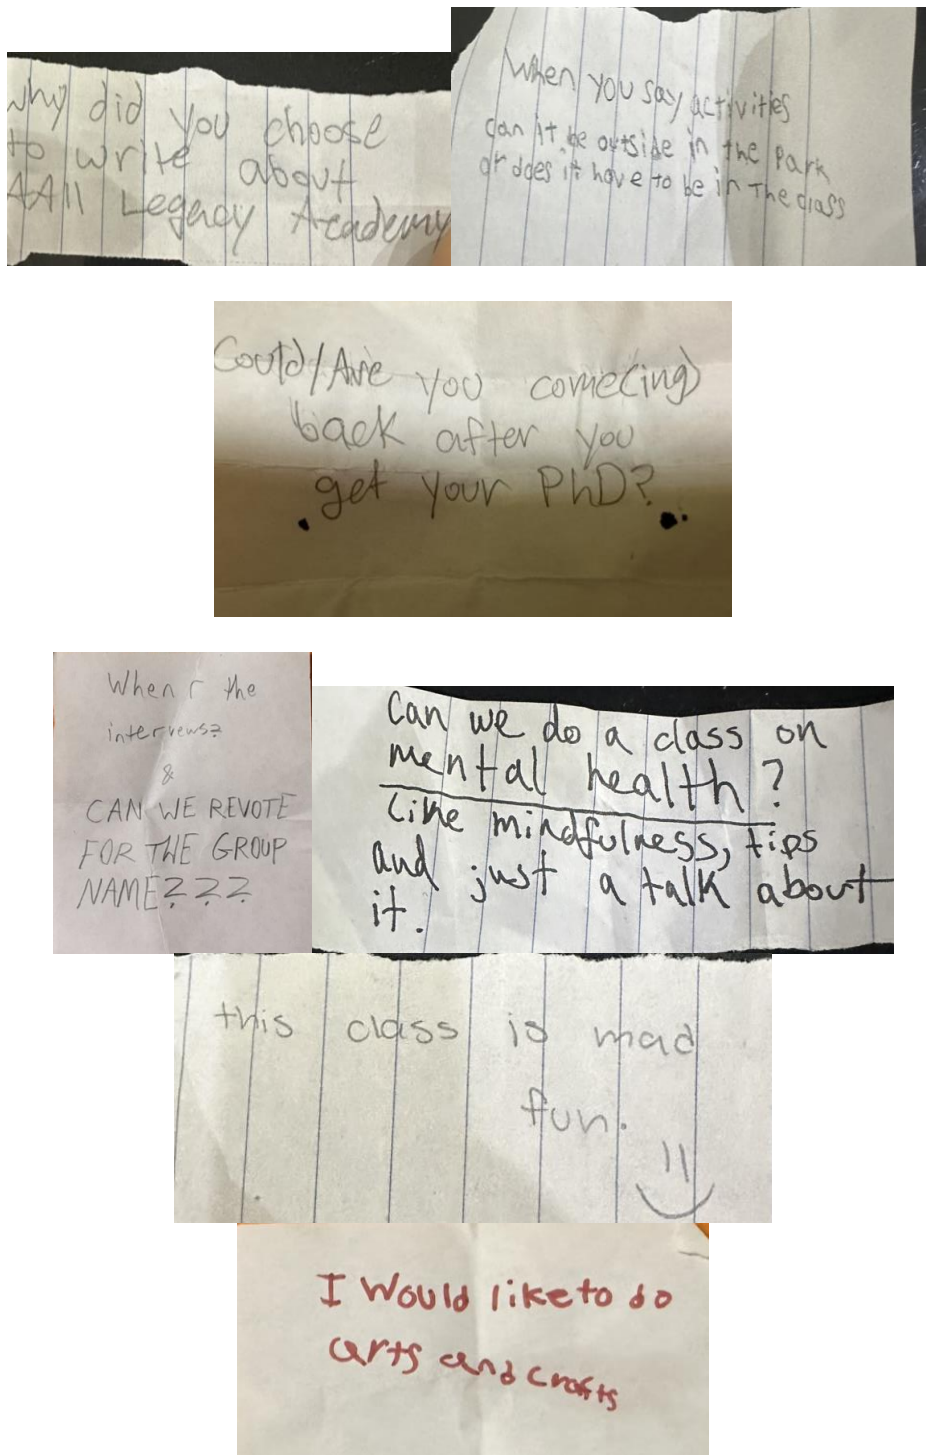 Why did you choose
to write about
AAll Legacy Academy
When you say activities
can it be outside in the Park
or does it have to be in The class
Could/Are you come(ing)
back after you
get your PhD?
When r the
interviews?
&
CAN WE REVOTE
FOR THE GROUP
NAME???
Can we do a class on
mental health?
Like mindfulness, tips
and just a talk about
it.
this class is mad
fun.
I Would like to do
arts and crafts